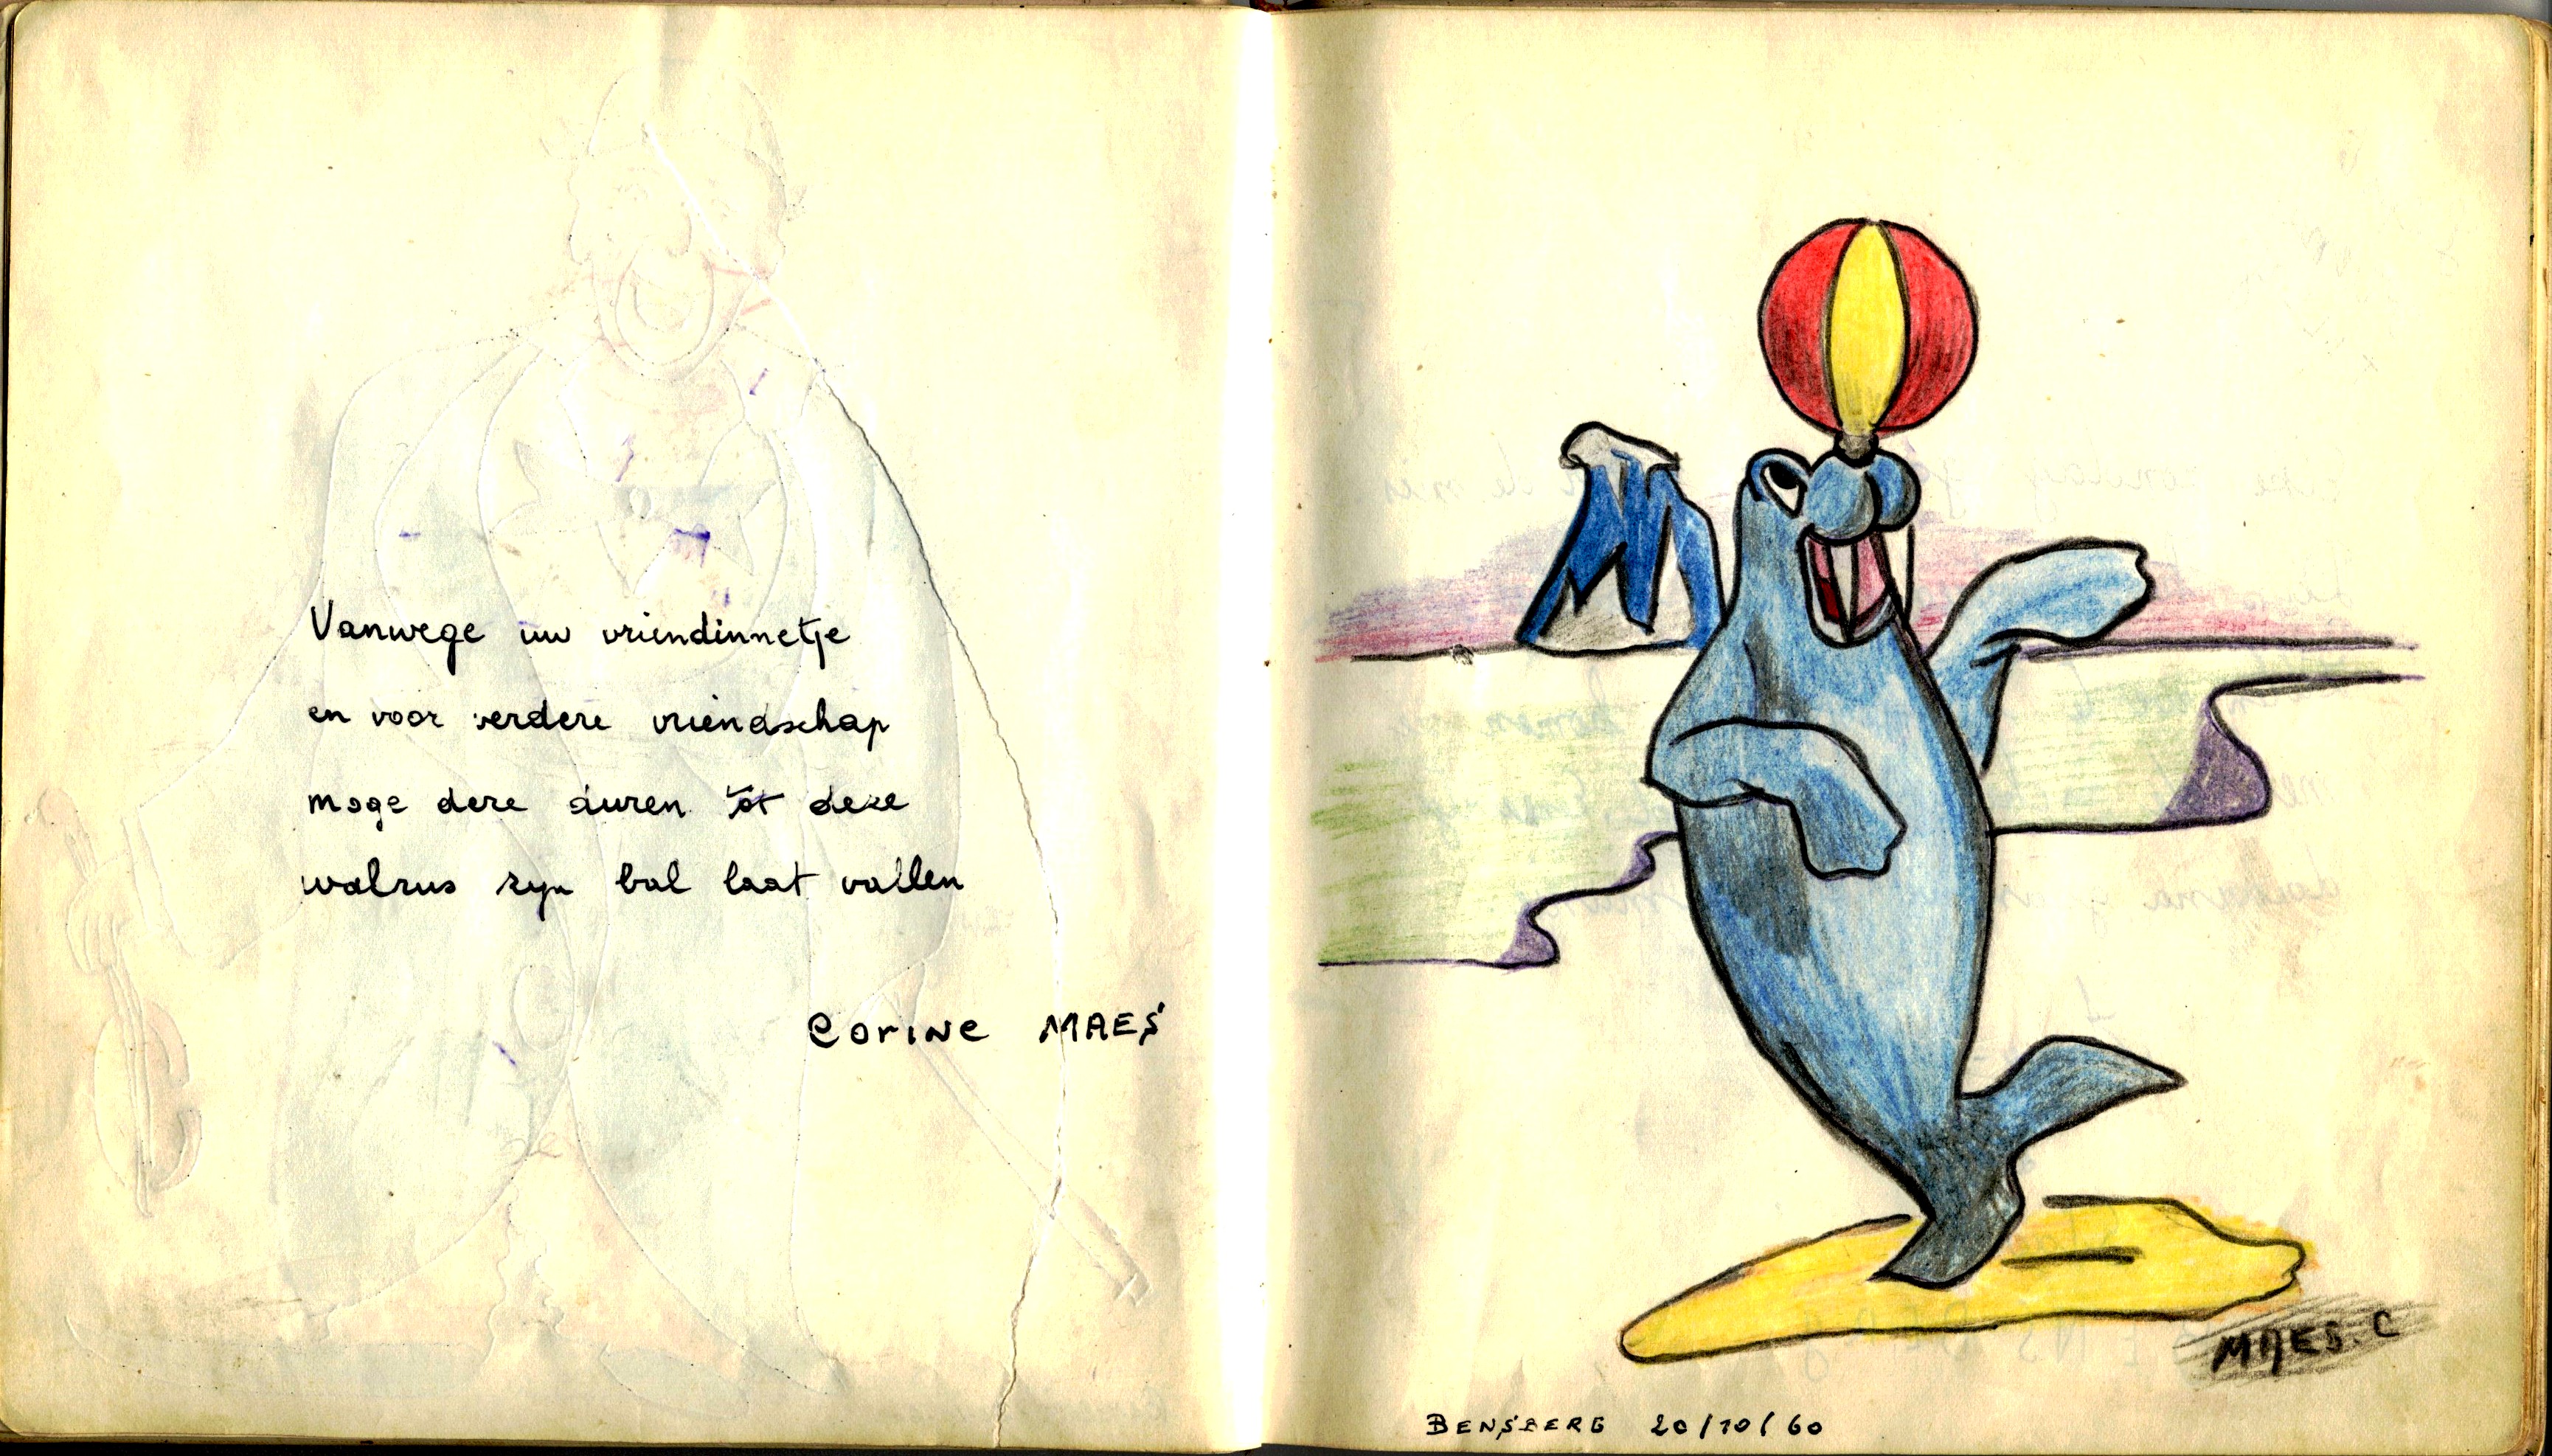 Vanwege uw vriendinnetje
en voor verdere vriendschap
moge deze duren tot deze
walrus zyn bal laat vallen
Corine MAES
MAES. C
BENSBERG 20/10/60